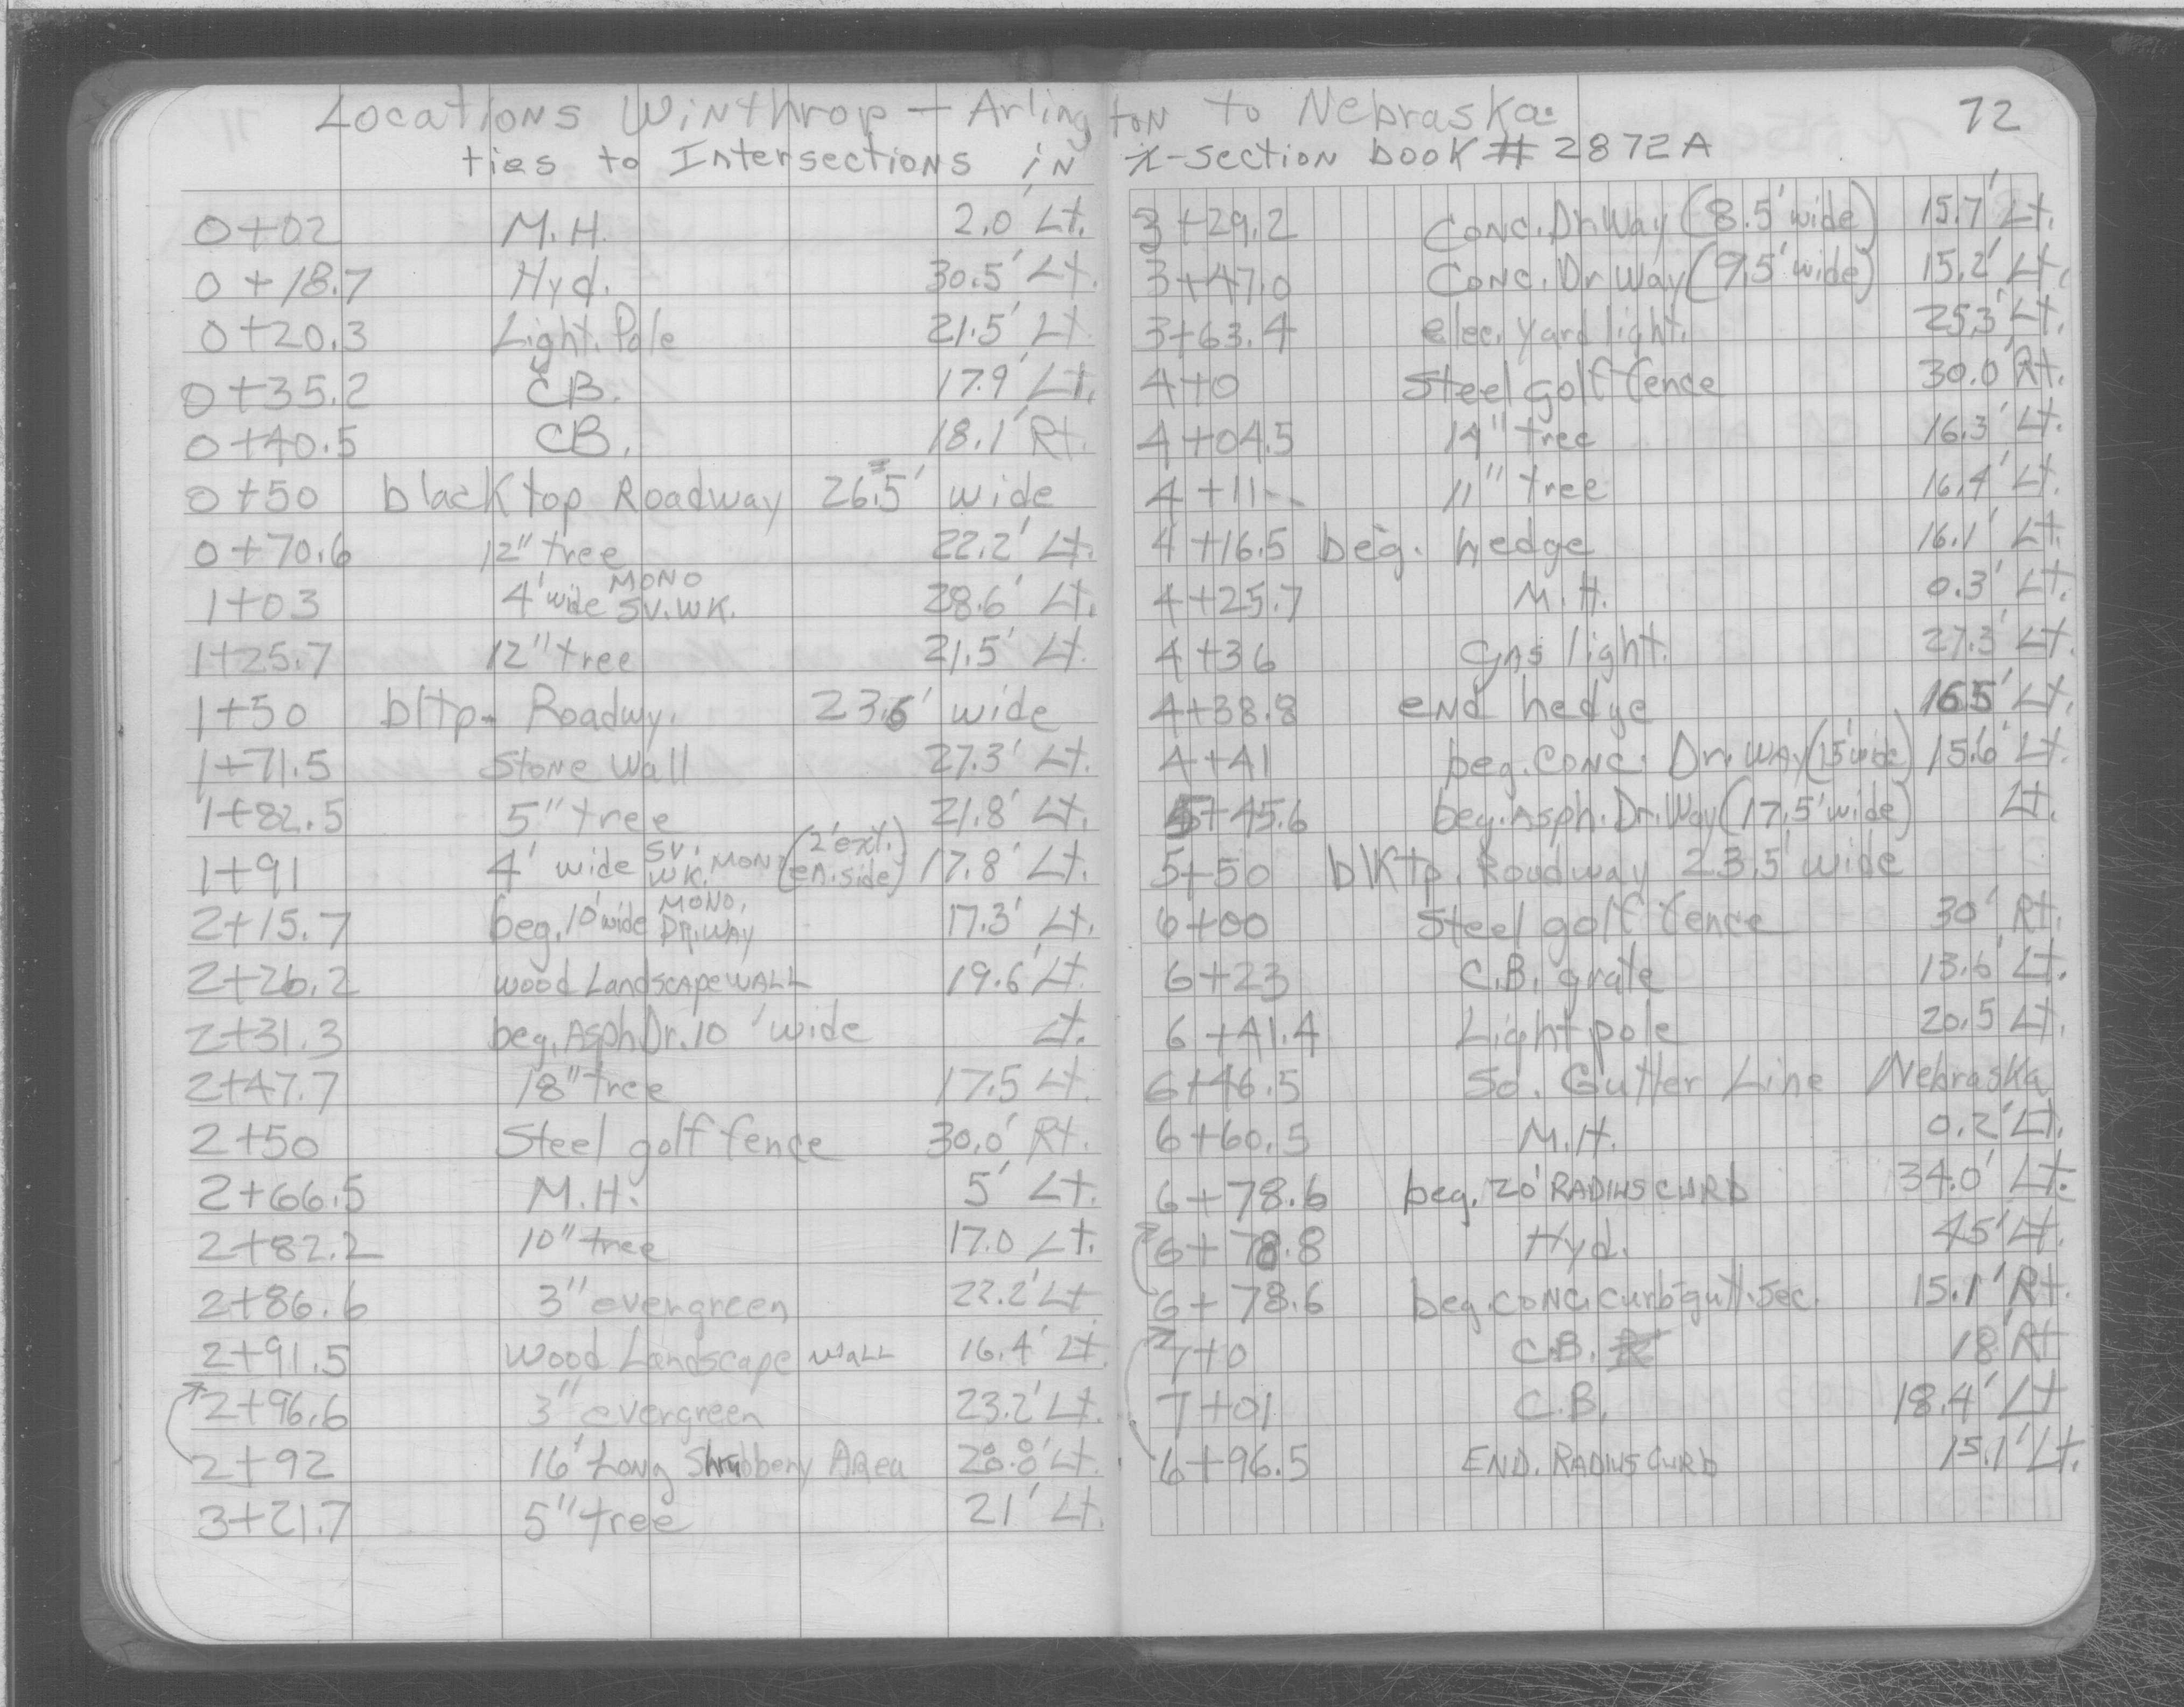 Locations Winthrop - Arlington to Nebraska
72
ties to Intersections in x-section book # 2872A
0+02 M.H. 2.0' Lt.
0+18.7 Hyd. 30.5' Lt.
0+20.3 Light Pole 21.5' Lt.
0+35.2 CB. 17.9' Lt.
0+40.5 CB. 18.1' Rt.
0+50 black top Roadway 26.5' wide
0+70.6 12" tree 22.2' Lt.
1+03 4' wide MONO SV.WK. 28.6' Lt.
1+25.7 12" tree 21.5' Lt.
1+50 bltp. Roadwy. 23.6' wide
1+71.5 Stone Wall 27.3' Lt.
1+82.5 5" tree 21.8' Lt.
1+91 4' wide SV. WK. MONO (2' ext. ea. side) 17.8' Lt.
2+15.7 beg. 10' wide MONO. DR.WAY 17.3' Lt.
2+26.2 wood Landscape WALL 19.6' Lt.
2+31.3 beg. Asph Dr. 10' wide Lt.
2+47.7 18" tree 17.5 Lt.
2+50 Steel golf fence 30.0' Rt.
2+66.5 M.H. 5' Lt.
2+82.2 10" tree 17.0 Lt.
2+86.6 3" evergreen 22.2' Lt
2+91.5 Wood Landscape WALL 16.4' Lt.
2+96.6 3" evergreen 23.2' Lt.
2+92 16' Long Shrubbery Area Lt.
3+21.7 5" tree 21' Lt.
3+29.2 Conc. Dr. Way (8.5' wide) 15.7' Lt.
3+47.0 Conc. Dr Way (9.5' wide) 15.2' Lt.
3+63.4 elec. yard light. 25.3' Lt.
4+0 Steel golf fence 30.0' Rt.
4+04.5 14" tree 16.3' Lt.
4+11 11" tree 16.4' Lt.
4+16.5 beg. hedge 16.1' Lt.
4+25.7 M.H. 0.3' Lt.
4+36 gas light. 27.3' Lt.
4+38.8 end hedge 16.5' Lt.
4+41 beg. conc. Dr. WAY (15' wide) 15.6' Lt.
5+45.6 beg. Asph. Dr. Way (17.5' wide) Lt.
5+50 blktp. Roadway 23.5' wide
6+00 Steel golf fence 30' Rt.
6+23 C.B. grate 13.6' Lt.
6+41.4 Light pole 20.5 Lt.
6+46.5 So. Gutter Line Nebraska
6+60.5 M.H. 0.2' Lt.
6+78.6 beg. 20' RADIUS CURB 34.0' Lt.
6+78.8 Hyd. 45' Lt.
6+78.6 beg. conc. curb-gutt. sec. 15.1' Rt.
7+0 C.B. 18' Rt
7+01 C.B. 18.4' Lt
6+96.5 END. RADIUS CURB 15.1' Lt.